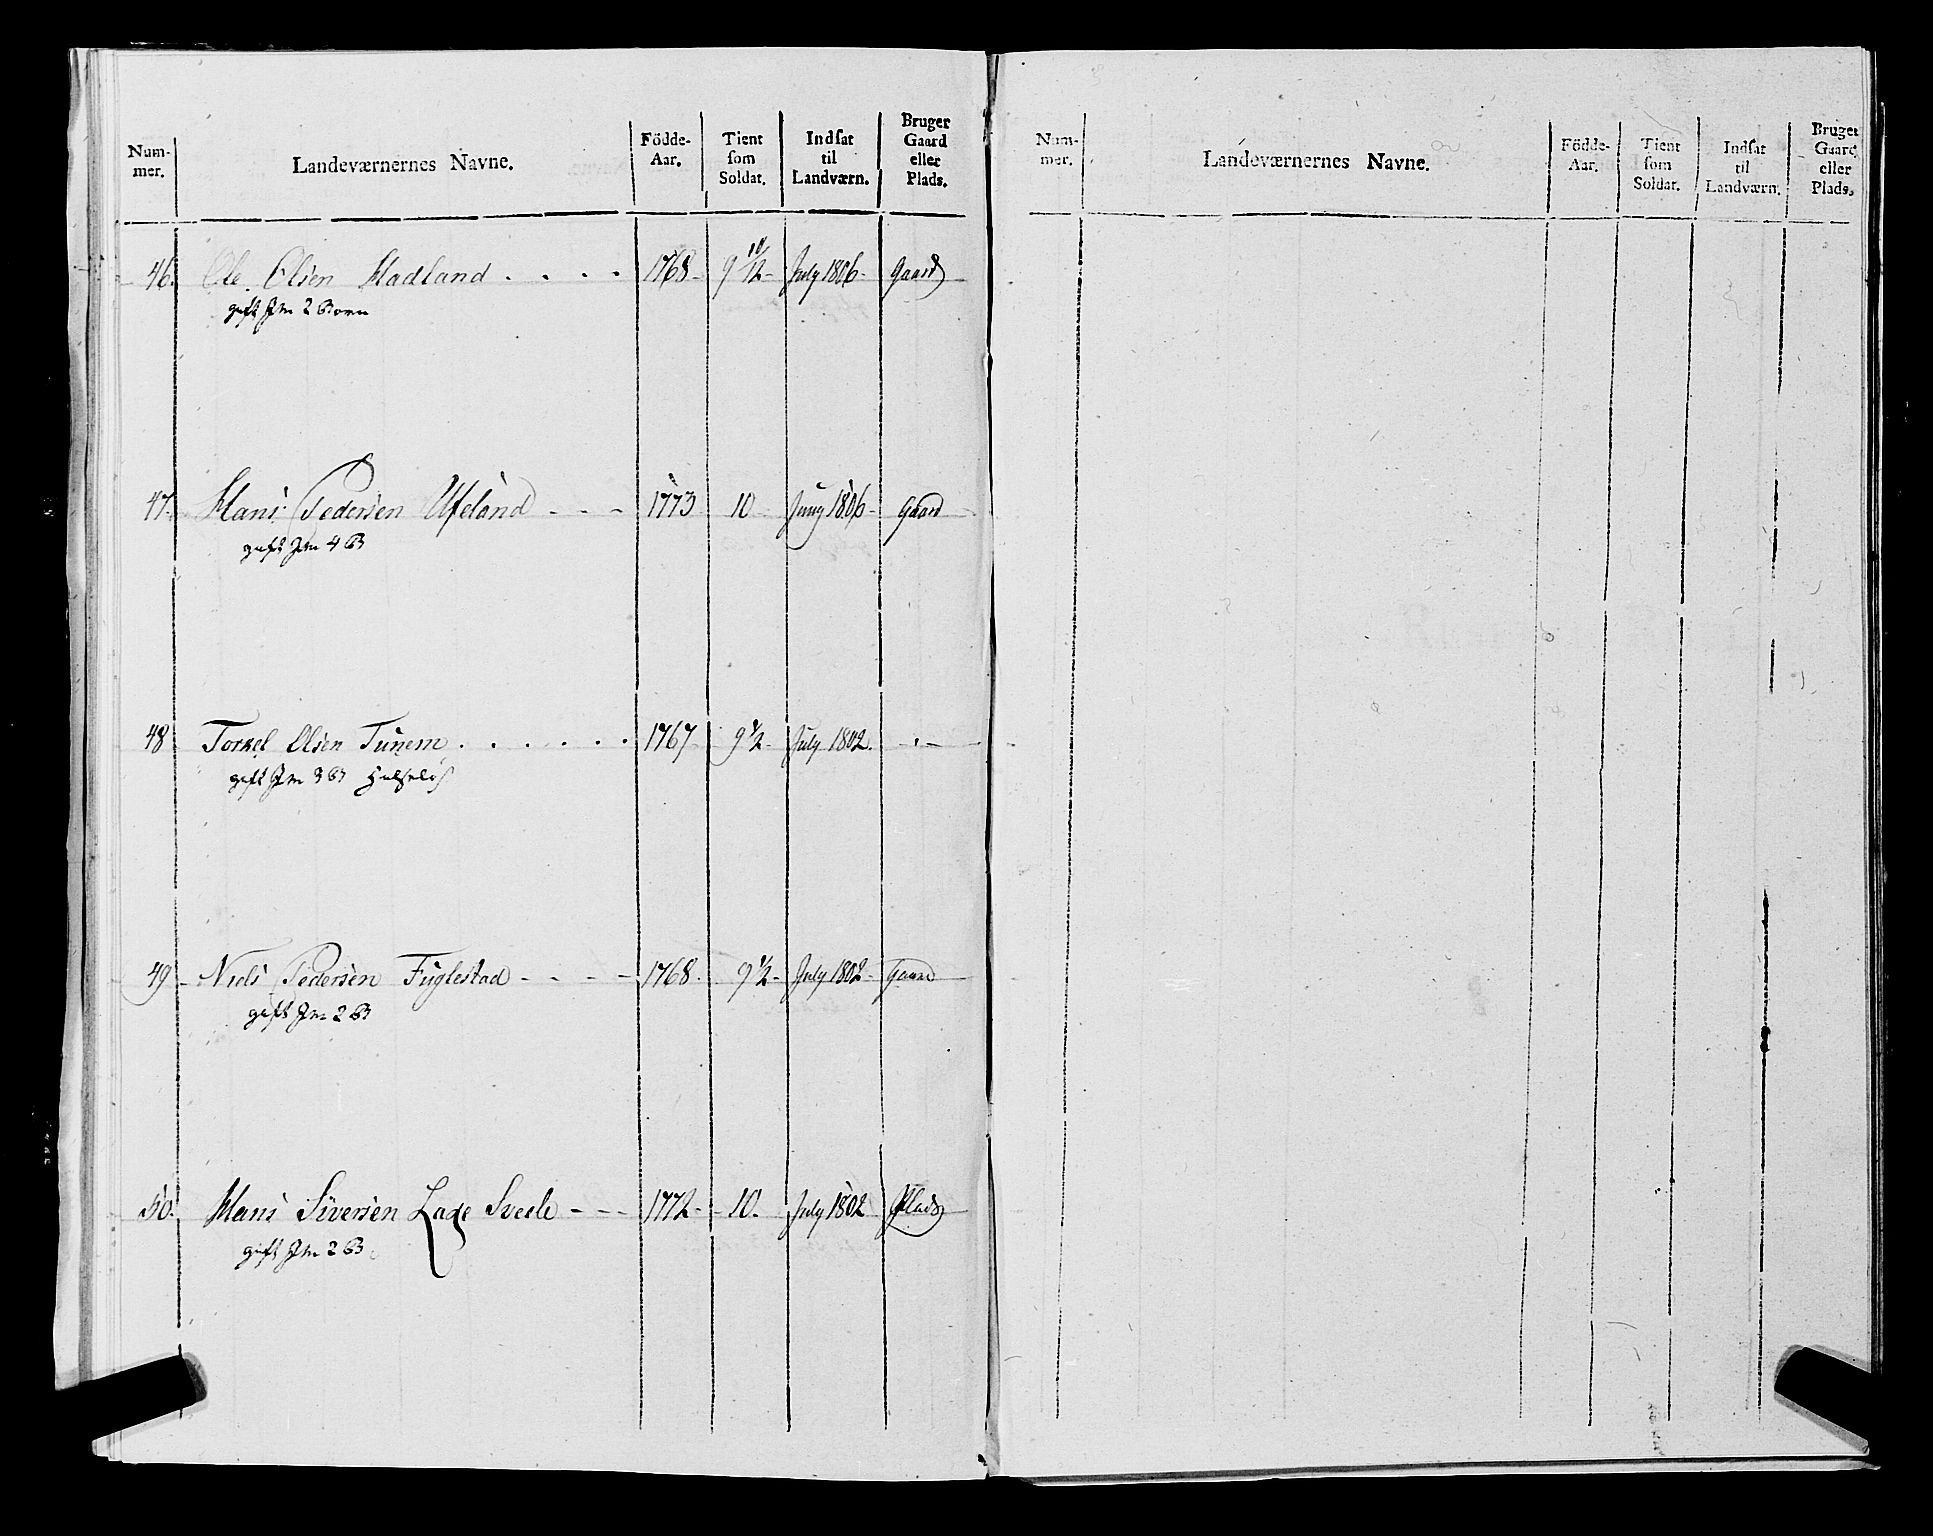 Num-
mer.
Landeværnernes Navne.
Födde-
Aar.
Tient
som
Soldat.
Indsat
til
Landværn.
Bruger
Gaard
eller
Plads.
46. Ole Olsen Hadland . . . . 1768 - 9 11/12 - July 1806 - Gaard
gift Im 2 Born
47. Hans Pedersen Ufeland - - - 1773 10 Juny 1806 - Gaard
gift Im 4 B
48. Torkel Olsen Tunem . . . . . . 1767 - 9 1/2 - July 1802. - . -
gift Im 3 B
49 - Niels Pedersen Fuglestad - - - - 1768. 9 1/2 - July 1802 - Gaard
gift Im 2 B
50. Hans Siversen Lage Sveele - - - 1772 - 10. July 1802 Plads
gift Im 2 B
Num-
mer.
Landeværnernes Navne.
Födde-
Aar.
Tient
som
Soldat.
Indsat
til
Landværn.
Bruger
Gaard
eller
Plads.